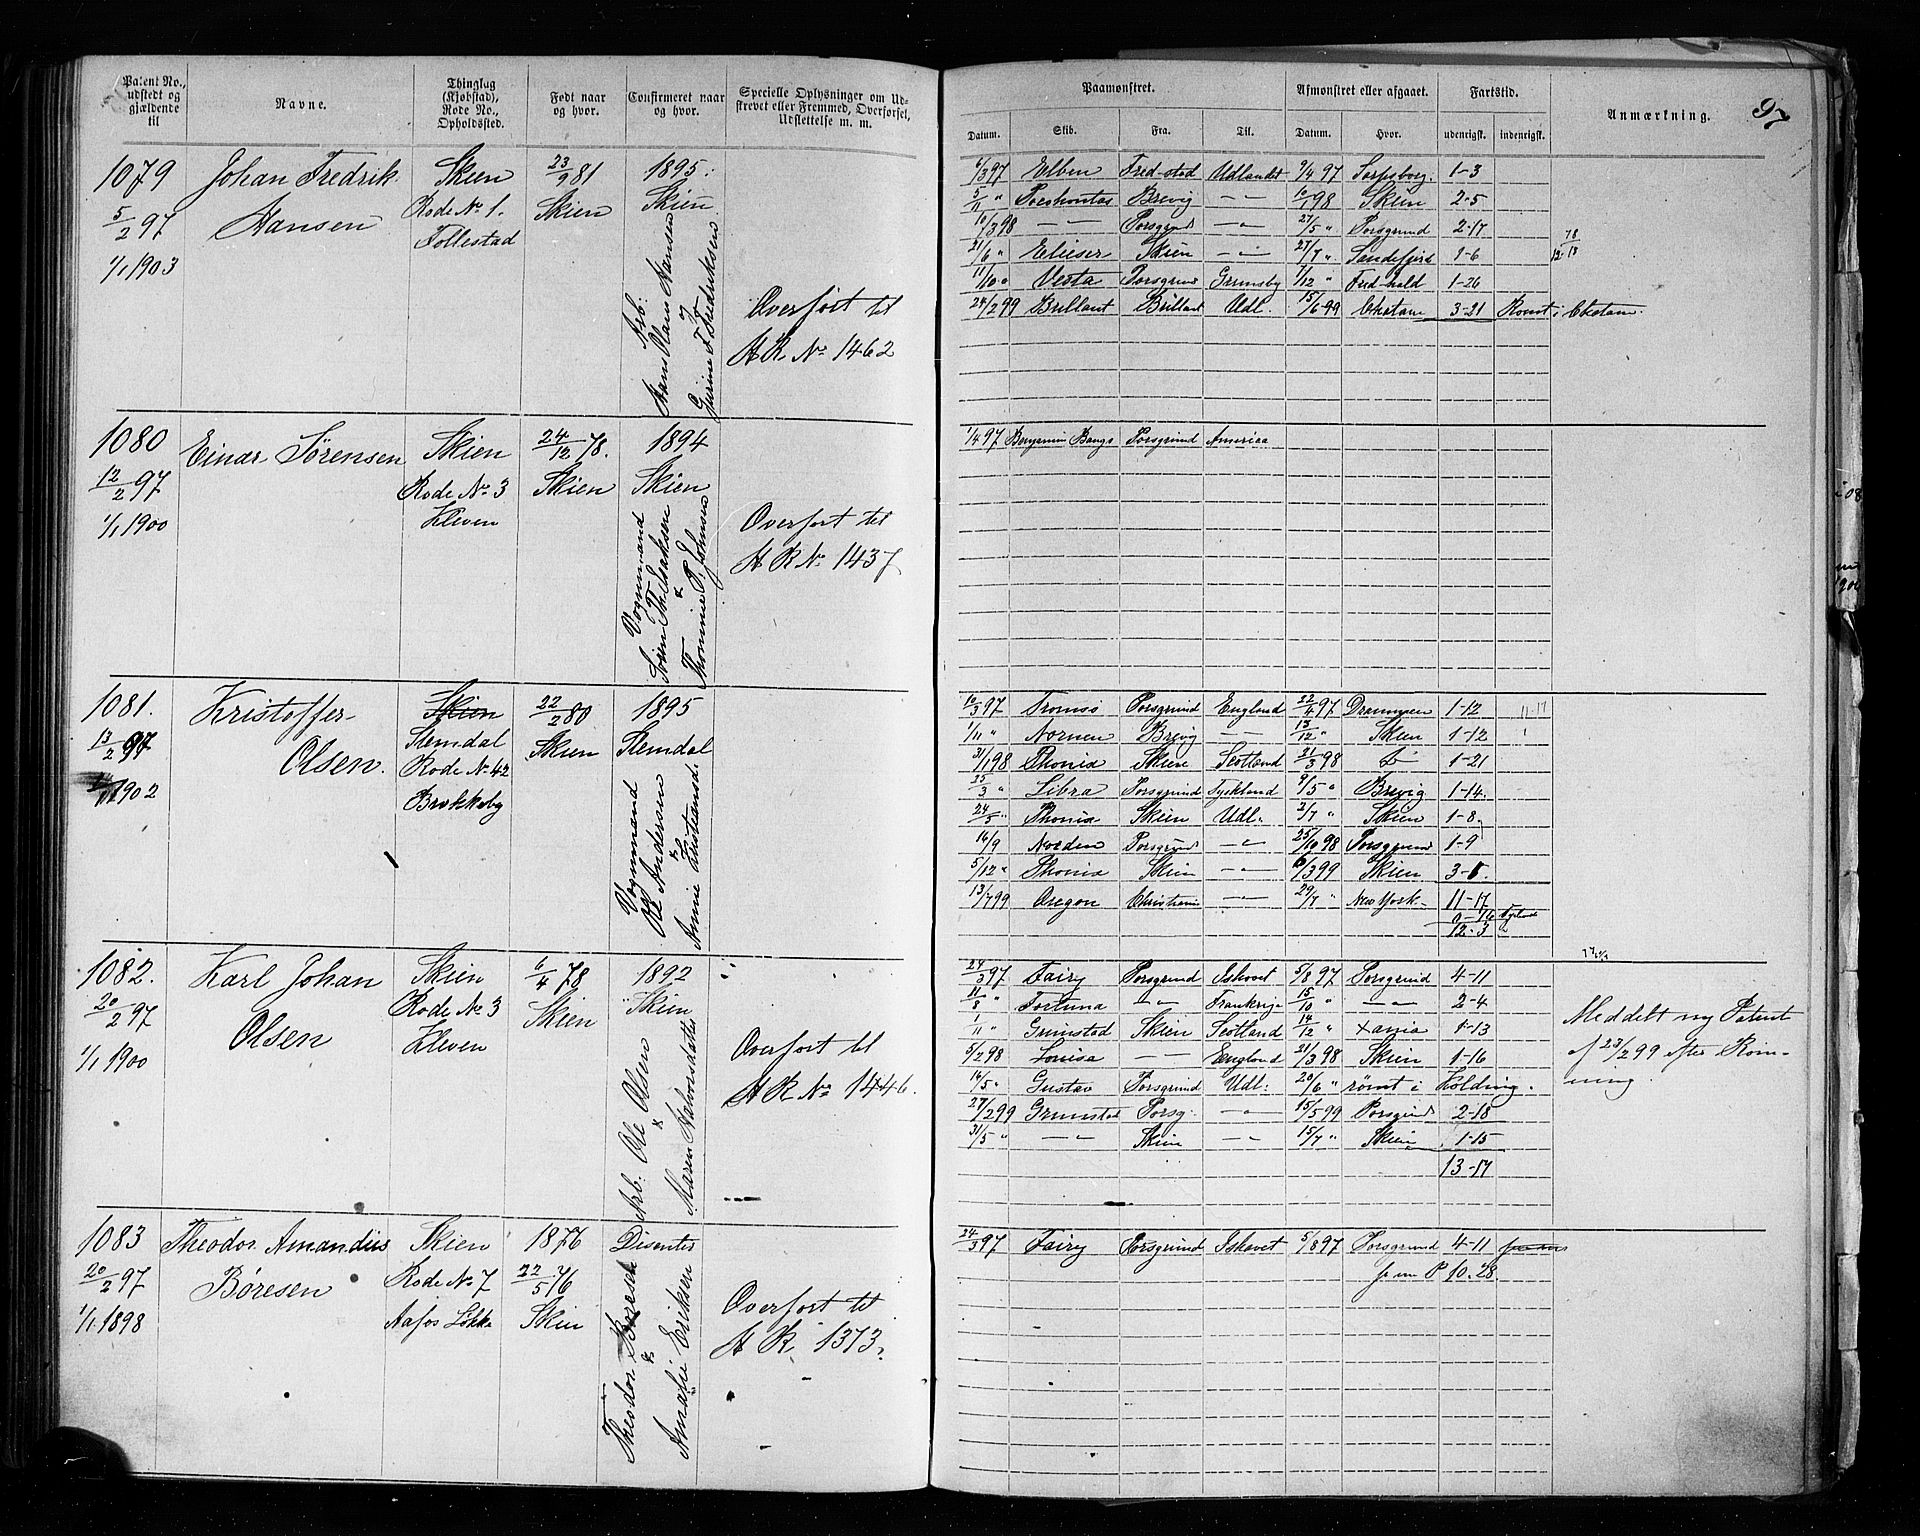 Patent No., udstedt og gjældende til
Navne.
Thinglag (Kjøbstad), Rode No., Opholdssted.
Født naar og hvor.
Confirmeret naar og hvor.
Specielle Oplysninger om Udskrevet eller Fremmed, Overførsel, Udslettelse m. m.
Paamønstret.
Afmønstret eller afgaaet.
Fartstid.
Anmærkning.
97
Datum. Skib. Fra. Til. Datum. Hvor. udenrigsk. indenrigsk.
1079
5/2 97
1/1 1903
Johan Fredrik
Hansen
Skien
Rode No 1.
Follestad
23/9 81
Skien
1895.
Skien
Arb.
Hans Olaus Hansen
Overført til
A R No 1462
6/3 97 Elben Fred-stad Udlandet 9/4 97 Sarpsborg. 1-3
5/11 " Pocahontas Brevig -"- 10/1 98 Skien 2-5
10/3 98 -"- Porsgrund -"- 27/5 " Porsgrund 2-17
21/6 " Elieser Skien -"- 27/7 " Sandefjord 1-6
11/10 " Vesta Porsgrund Grimsby 7/12 " Fred-hald 1-26
24/2 99 Brillant Brillant Udl. 15/6 99 Chatam 3-21 Rømt i Chatam.
1080
12/2 97
1/1 1900
Einar Sørensen
Skien
Rode No 3
Kleven
24/12 78.
Skien
1894
Skien
Vognmand
Søren Th. Isaksen
&
Thomine P. Johnsen
Overført til
A R No 1437
1/4 97 Benjamin Bangs Porsgrund America
1081.
13/2 97
1902
Kristoffer
Olsen.
Skien
Slemdal
Rode No 42
Brækkeby
22/2 80
Skien
1895
Slemdal
Vognmand
Ole Andersen
&
Anne Kristiansd.
10/3 97 Tromsø Porsgrund England 22/4 97 Drammen 1-12
1/11 " Nornen Brevig -"- 13/12 " Skien 1-12
31/1 98 Phønix Skien Scotland 21/3 98 D 1-21
25/3 " Libra Porsgrund Tyskland 9/5 " Brevig 1-14.
24/5 " Phønix Skien Udl. 2/7 " Skien 1-8.
16/9 Norden Porsgrund -"- 25/10 98 Porsgrund 1-9
5/12 " Phønix Skien -"- 6/3 99 Skien 3-1.
13/7 99 Oregon Christiania -"- 29/7 " New York. 11-17
0-16
12-3
1082.
20/2 97
1/1 1900
Karl Johan
Olsen
Skien
Rode No 3
Kleven
6/4 78
Skien
1892
Skien
Arb. Ole Olsen
&
Maren Halvorsdatter
Overført til
A R No 1446.
24/3 97 Fairy Porsgrund Ishavet 5/8 97 Porsgrund 4-11
11/8 " Fortuna -"- Frankrige 15/10 " -"- 2-4
1/11 " Grimstad Skien Scotland 14/12 " Xania 1-13
5/2 98 Louisa -"- England 21/3 98 Skien 1-16
16/5 " Gustav Porsgrund Udl: 20/6 " rømt i Kolding.
27/2 99 Grimstad Porsg. -"- 15/5 99 Porsgrund 2-18
31/5 " -"- Skien -"- 15/7 " Skien 1-15
13-17
Meddelt ny Patent
af 23/2 99 efter Røm-
ning.
1083
20/2 97
1/1 1898
Theodor Amandius
Børesen
Skien
Rode No 7
Aafos Løkke
1876
22/5 76
Skien
Disenter
Theodor Børesen
&
Amalie Eriksen
Overført til
A R 1373.
24/3 97 Fairy Porsgrund Ishavet 5/8 97 Porsgrund 4-11
10.28.